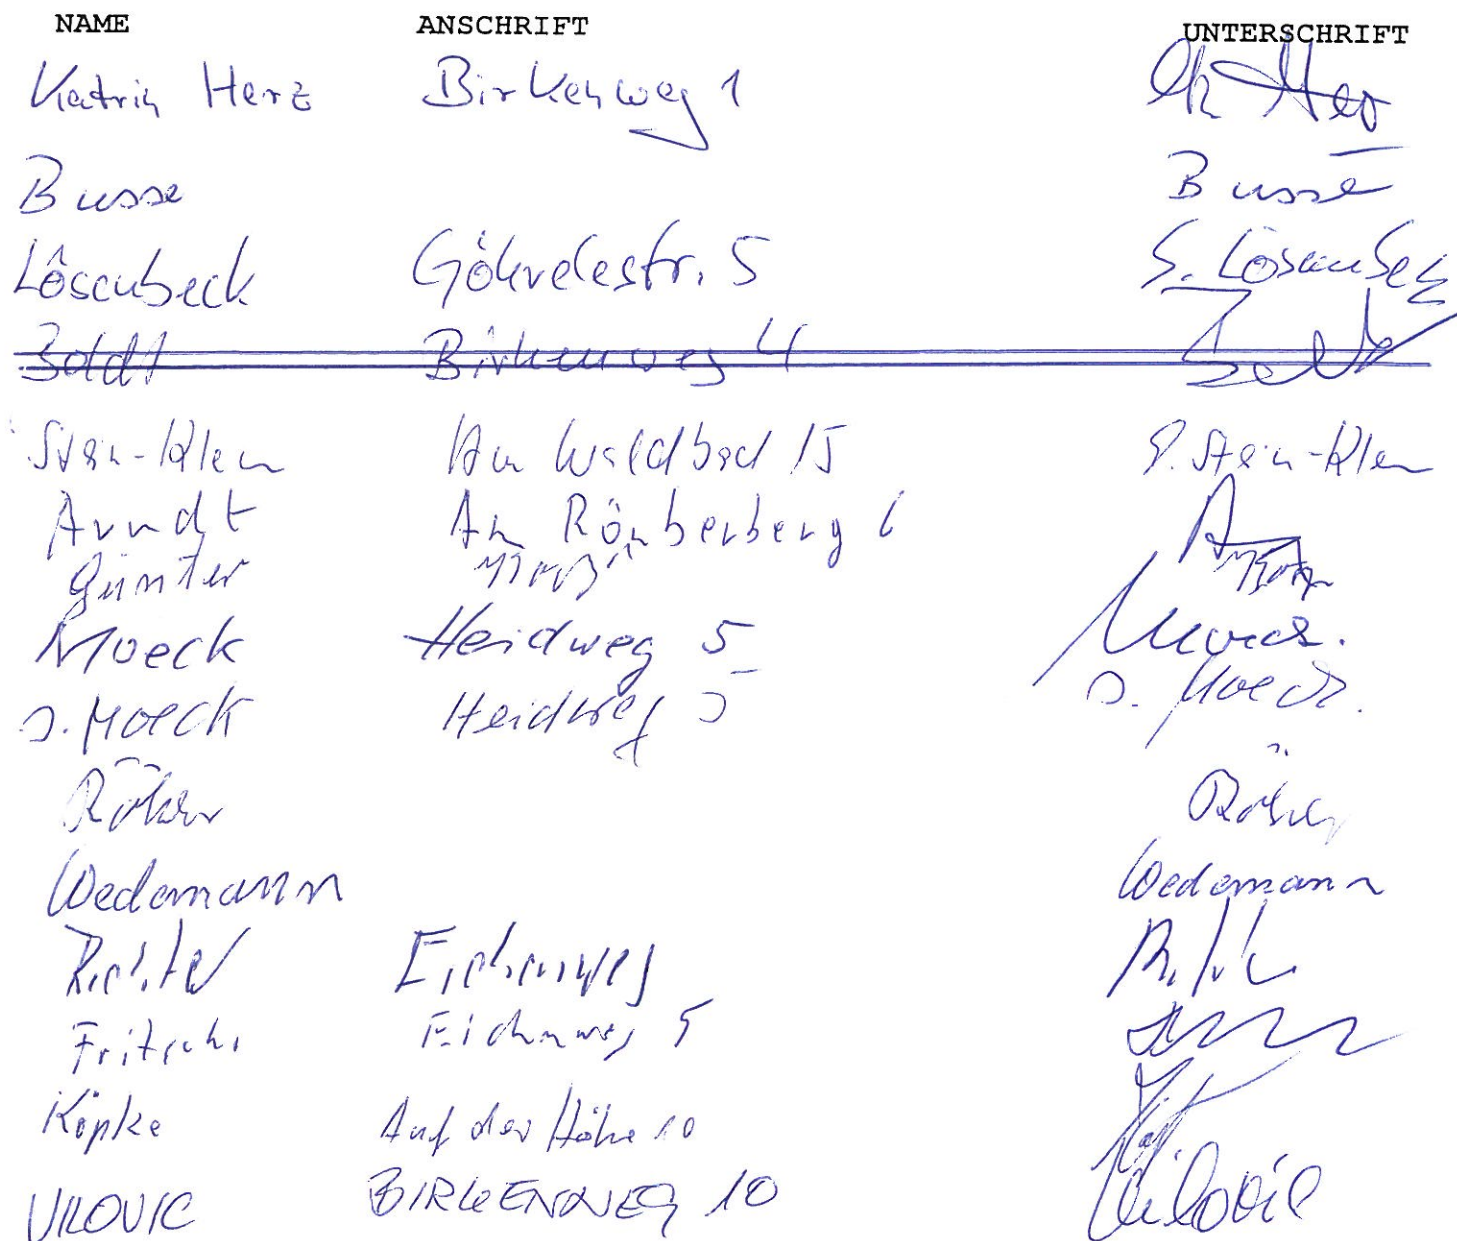 NAME ANSCHRIFT UNTERSCHRIFT
Katrin Herz Birkenweg 1
Busse Busse
Lösenbeck Göhrdestr. 5 S. Lösenbeck
Boldt Birkenweg 4
Stein-Klein Am Waldbad 15 Stein-Klein
Arndt Am 6
Günter
Moeck Heidweg 5 Moeck.
S. Moeck Heidweg 5 S. Moeck.
Röher Röher
Wedemann Wedemann
Richter Eichenweg
Fritsche Eichenweg 5
Köpke Auf der Höhe 10
VILOVIC BIRKENWEG 10 Vilovic